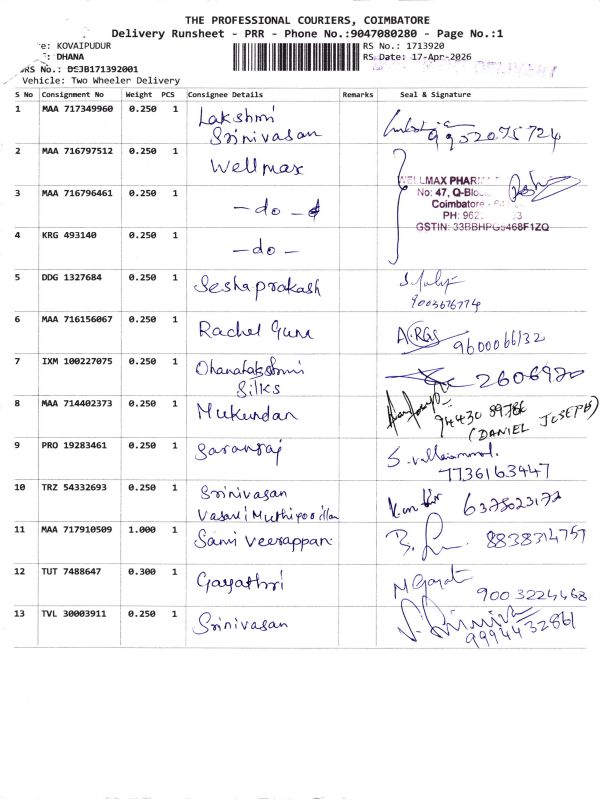 THE PROFESSIONAL COURIERS, COIMBATORE
Delivery Runsheet - PRR - Phone No.:9047080280 - Page No.:1
e: KOVAIPUDUR
RS No.: 1713920
: DHANA
RS Date: 17-Apr-2026
DELIVERY
RS No.: DSJB171392001
Vehicle: Two Wheeler Delivery
S No Consignment No Weight PCS Consignee Details Remarks Seal & Signature
1 MAA 717349960 0.250 1 Lakshmi
Srinivasan 9952075724
2 MAA 716797512 0.250 1 Wellmax
WELLMAX PHAR
3 MAA 716796461 0.250 1 - do -
No: 47, Q-Bloc
Coimbatore
PH: 962 3
GSTIN: 33BBHPG5468F1ZQ
4 KRG 493140 0.250 1 - do -
5 DDG 1327684 0.250 1 Seshaprakash
9003676774
6 MAA 716156067 0.250 1 Rachel Guna RGS 9600066132
7 IXM 100227075 0.250 1 Dhanalakshmi
Silks 2606920
8 MAA 714402373 0.250 1 Mukundan 94430 89786
(DANIEL JOSEPH)
9 PRO 19283461 0.250 1 Saranraj
7736163447
10 TRZ 54332693 0.250 1 Srinivasan
Vasavi 6378023172
11 MAA 717910509 1.000 1 Sanvi Veerappan 8838314757
12 TUT 7488647 0.300 1 Gayathri M Gayat
900 3224468
13 TVL 30003911 0.250 1 Srinivasan
9994432861